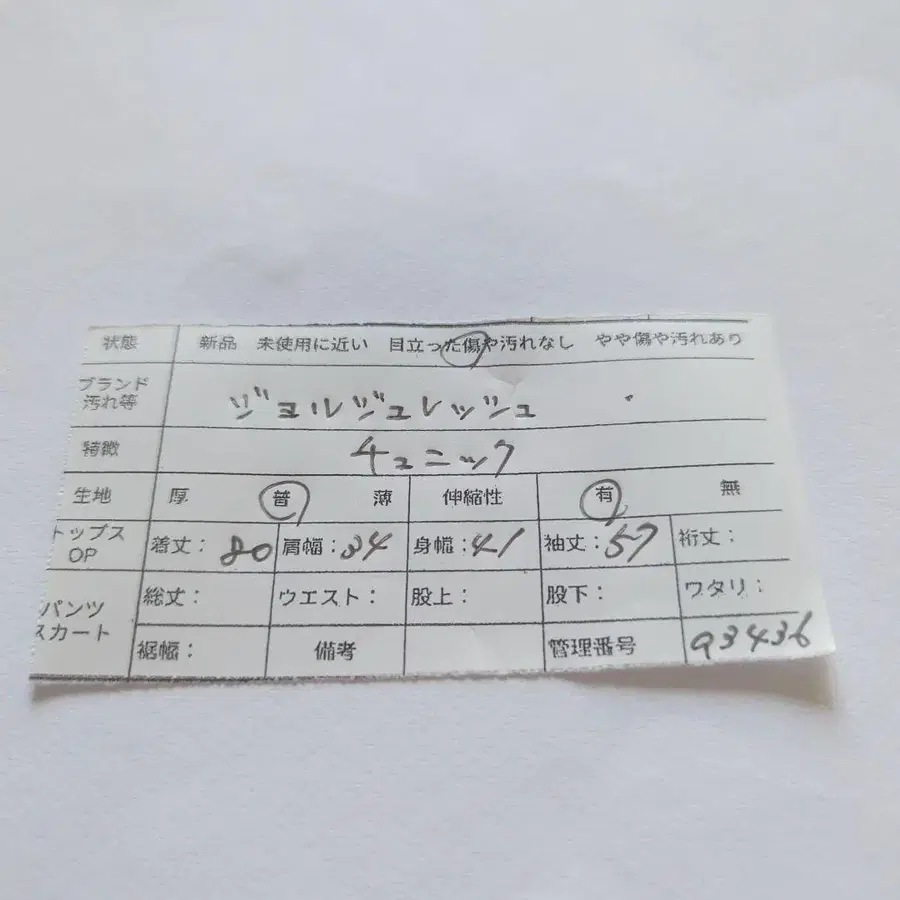 状態 新品 未使用に近い 目立った傷や汚れなし やや傷や汚れあり
ブランド
汚れ等 ジョルジュレッシュ
特徴 チュニック
生地 厚 普 薄 伸縮性 有 無
トップス
OP 着丈: 80 肩幅: 34 身幅: 41 袖丈: 57 裄丈:
パンツ
スカート 総丈: ウエスト: 股上: 股下: ワタリ:
裾幅: 備考 管理番号 93436